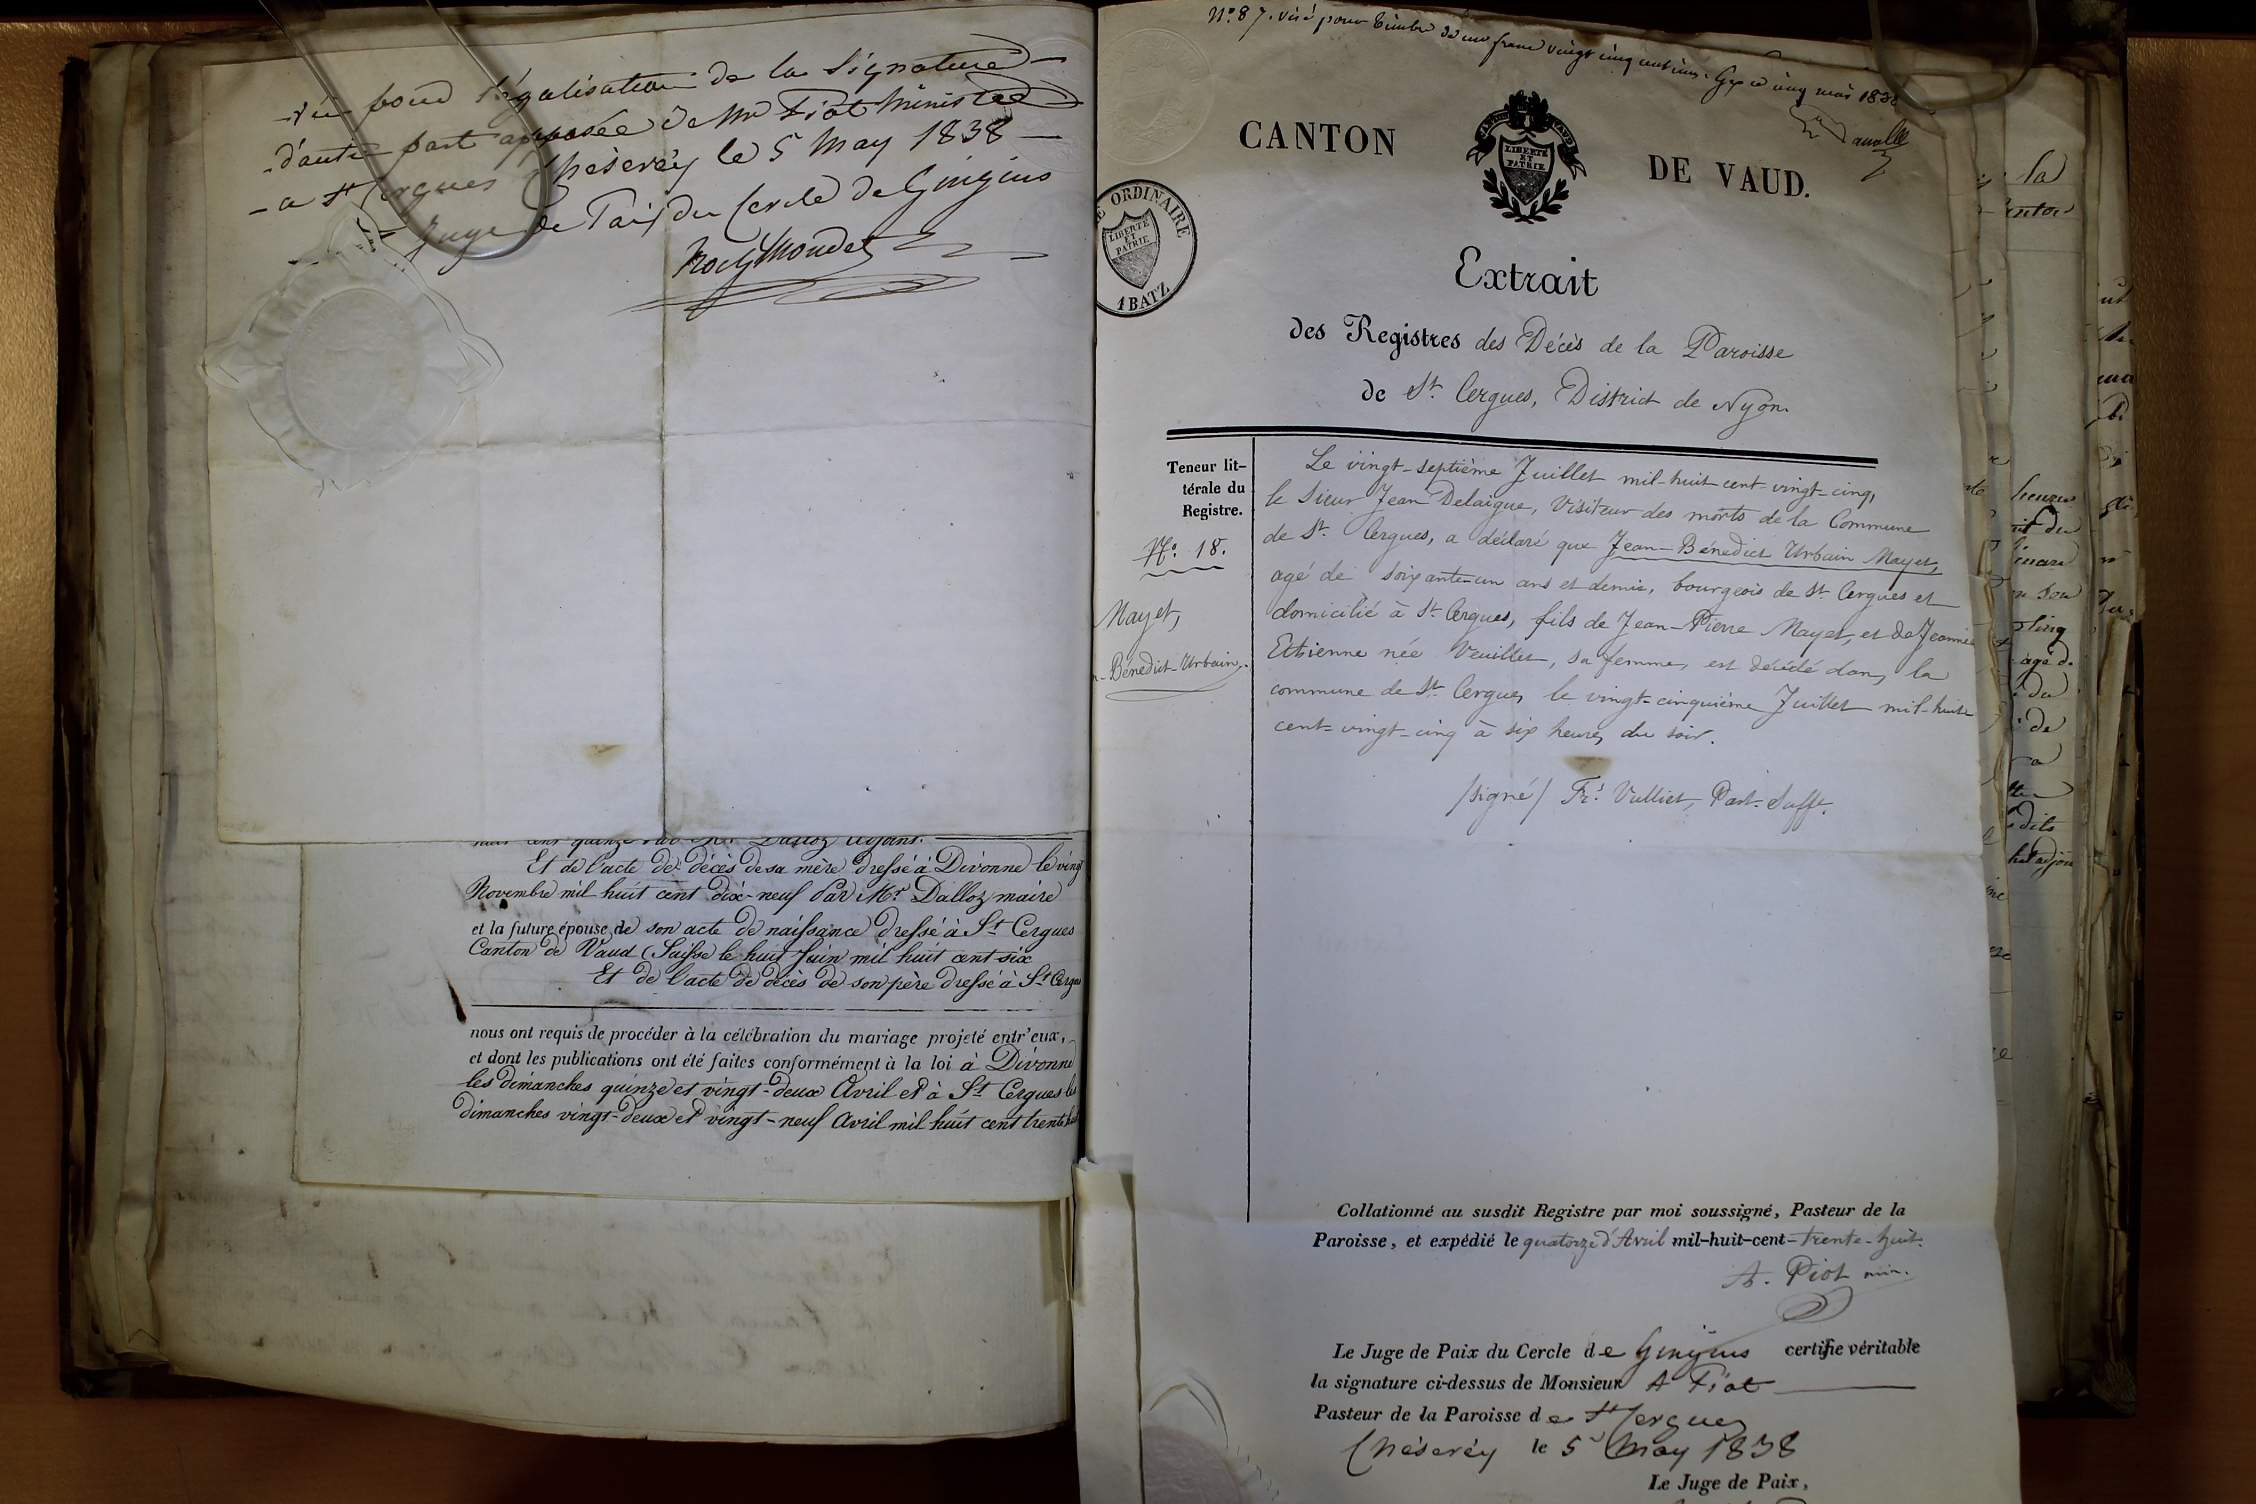 vu pour légalisation de la Signature
d'autre part apposée de Mr Piot Ministre
a St Cergues Chéserèy le 5 May 1838
Juge de Paix du Cercle de Gingins
huit cent quinze Dalloz adjoint.
Et de l'acte de décès de sa mère dressé à Divonne le vingt
Novembre mil huit cent dix-neuf Par Mr. Dalloz maire
et la future épouse, de son acte de naissance dressé à St. Cergues
Canton de Vaud (Suisse le huit Juin mil huit cent six
Et de l'acte de décès de son père dressé à St. Cergues
nous ont requis de procéder à la célébration du mariage projeté entr'eux,
et dont les publications ont été faites conformément à la loi à Divonne
les dimanches quinze et vingt-deux Avril et à St. Cergues les
dimanches vingt-deux et vingt-neuf Avril mil huit cent trente huit
No. 87. visé pour timbre de un franc vingt cinq centimes. Gex cinq mai 1838
CANTON DE VAUD.
CANTON DE VAUD
LIBERTÉ
ET
PATRIE
E ORDINAIRE
LIBERTÉ
ET
PATRIE
1 BATZ
Extrait
des Registres des Décès de la Paroisse
de St. Cergues, District de Nyon.
Teneur lit-
térale du
Registre.
No. 18.
Mayet,
-Bénédict-Urbain.
Le vingt-septième Juillet mil-huit cent-vingt-cinq,
le Sieur Jean Delaigue, Visiteur des morts de la Commune
de St. Cergues, a déclaré que Jean-Bénédict Urbain Mayet,
agé de soixante-un ans et demi, bourgeois de St. Cergues et
domicilié à St. Cergues, fils de Jean-Pierre Mayet, et de Jeanne
Ettienne née Veuillet, sa femme, est décédé dans la
commune de St. Cergues le vingt-cinquième Juillet mil-huit
cent-vingt-cinq à six heures du soir.
/signé/ Fr. Vulliet, Past. Suff.
Collationné au susdit Registre par moi soussigné, Pasteur de la
Paroisse, et expédié le quatorze d'Avril mil-huit-cent-trente-huit.
A. Piot min.
Le Juge de Paix du Cercle de Gingins certifie véritable
la signature ci-dessus de Monsieur A Piot
Pasteur de la Paroisse de St Cergues
Chéserèy le 5 May 1838
Le Juge de Paix,